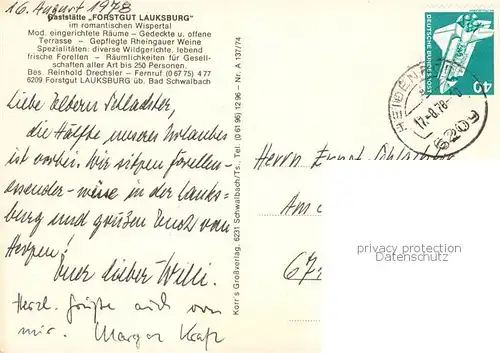 16. August 1978
Gaststätte „FORSTGUT LAUKSBURG"
im romantischen Wispertal
Mod. eingerichtete Räume – Gedeckte u. offene
Terrasse – Gepflegte Rheingauer Weine
Spezialitäten: diverse Wildgerichte, lebend
frische Forellen – Räumlichkeiten für Gesell-
schaften aller Art bis 250 Personen.
Bes. Reinhold Drechsler – Fernruf (0 67 75) 4 77
6209 Forstgut LAUKSBURG üb. Bad Schwalbach
Liebe Eltern
die Hälfte unseres Urlaubes
ist vorbei. Wir sitzen forellen-
essender-weise in der Lauks-
burg und grüßen Euch von
Herzen!
Euer lieber Willi.
Herzl. Grüße auch von
mir. Margot Kraft
Korr's Großverlag, 6231 Schwalbach/Ts., Tel. (0 61 96) 12 96 - Nr. A 137/74
DEUTSCHE BUNDESPOST
40
HEIDEN
17.-8.78
6209
Herrn Ernst
Am
67
privacy protection
Datenschutz